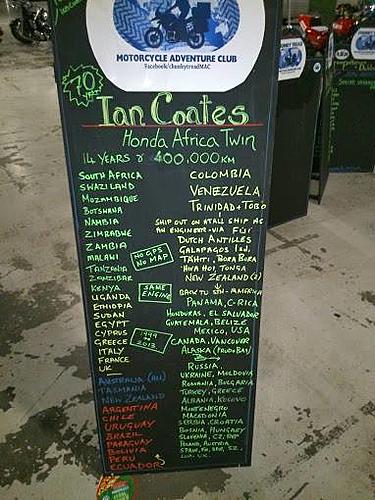 MOTORCYCLE ADVENTURE CLUB
Facebook/chunkytreadMAC
70
Ian Coates
Honda Africa Twin
14 YEARS & 400,000 KM
SOUTH AFRICA
SWAZILAND
MOZAMBIQUE
BOTSWANA
NAMBIA
ZIMBABWE
ZAMBIA
MALAWI
TANZANIA
ZANZIBAR
KENYA
UGANDA
ETHIOPIA
SUDAN
EGYPT
CYPRUS
GREECE
ITALY
FRANCE
UK
AUSTRALIA (ALL)
TASMANIA
NEW ZEALAND
ARGENTINA
CHILE
URUGUAY
BRAZIL
PARAGUAY
BOLIVIA
PERU
ECUADOR
NO GPS
NO MAP
SAME
ENGINE
1999
2013
COLOMBIA
VENEZUELA
TRINIDAD + TOBO
SHIP OUT ON A TALL SHIP AS
AN ENGINEER - VIA FIJI
DUTCH ANTILLES
GALAPAGOS ISD,
TAHITI, BORA BORA
HWA HOI, TONGA
NEW ZEALAND (2)
BACK TO STH-AMERICA
PANAMA, C-RICA
HONDURAS, EL SALVADOR
GUATEMALA, BELIZE
MEXICO, USA
CANADA, VANCOUVER
ALASKA (PRUDO BAY)
RUSSIA,
UKRAINE, MOLDOVIA
ROMANIA, BULGARIA
TURKEY, GREECE
ALBANIA, KOSOVO
MONTENEGRO
MACEDONIA
SERBIA, CROATIA
BOSNIA, HUNGARY
SLOVENIA, CZ, REP
POLAND, AUSTRIA